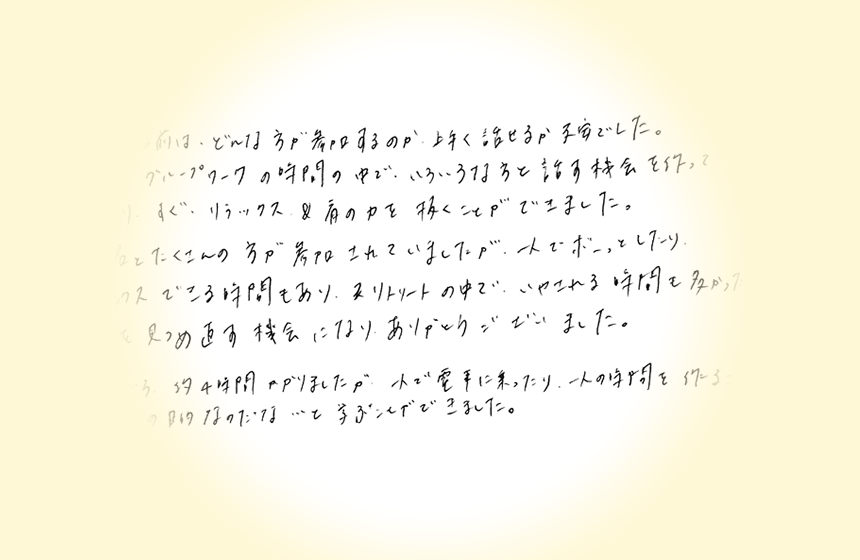 前は、どんな方が参加するのか、上手く話せるか不安でした。
グループワークの時間の中で、いろいろな方と話す機会を作って
すぐ、リラックス&肩の力を抜くことができました。
とたくさんの方が参加されていましたが、一人でボーっとしたり、
クスできる時間もあり、又リトリートの中で、いやされる時間も多かった
を見つめ直す機会になり、ありがとうございました。
約4時間かかりましたが、一人で電車に乗ったり、一人の時間を作る
目的なのだな…と学ぶことができました。